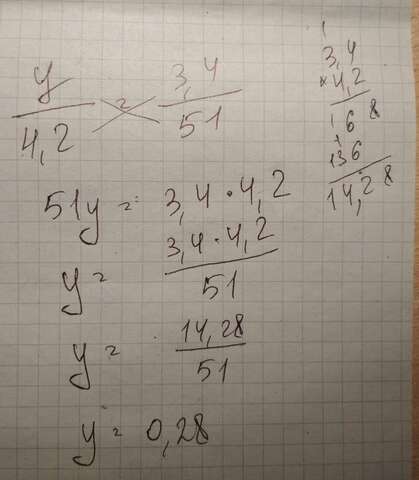 y/4,2 = 3,4/51
51y = 3,4 · 4,2
y = 3,4 · 4,2/51
y = 14,28/51
y = 0,28
1
3,4
× 4,2
1
68
1
136
14,28